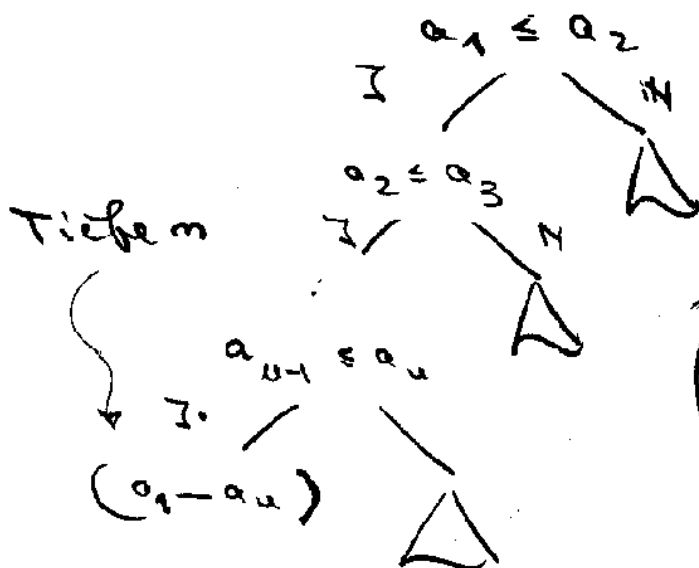 a₁ ≤ a₂
J N
a₂ ≤ a₃
Tiefe n
J N
aₙ₋₁ ≤ aₙ
J
(a₁ — aₙ)